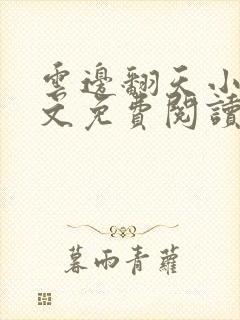 雲邊翻天小
文免費閱讀
暮雨青蘿